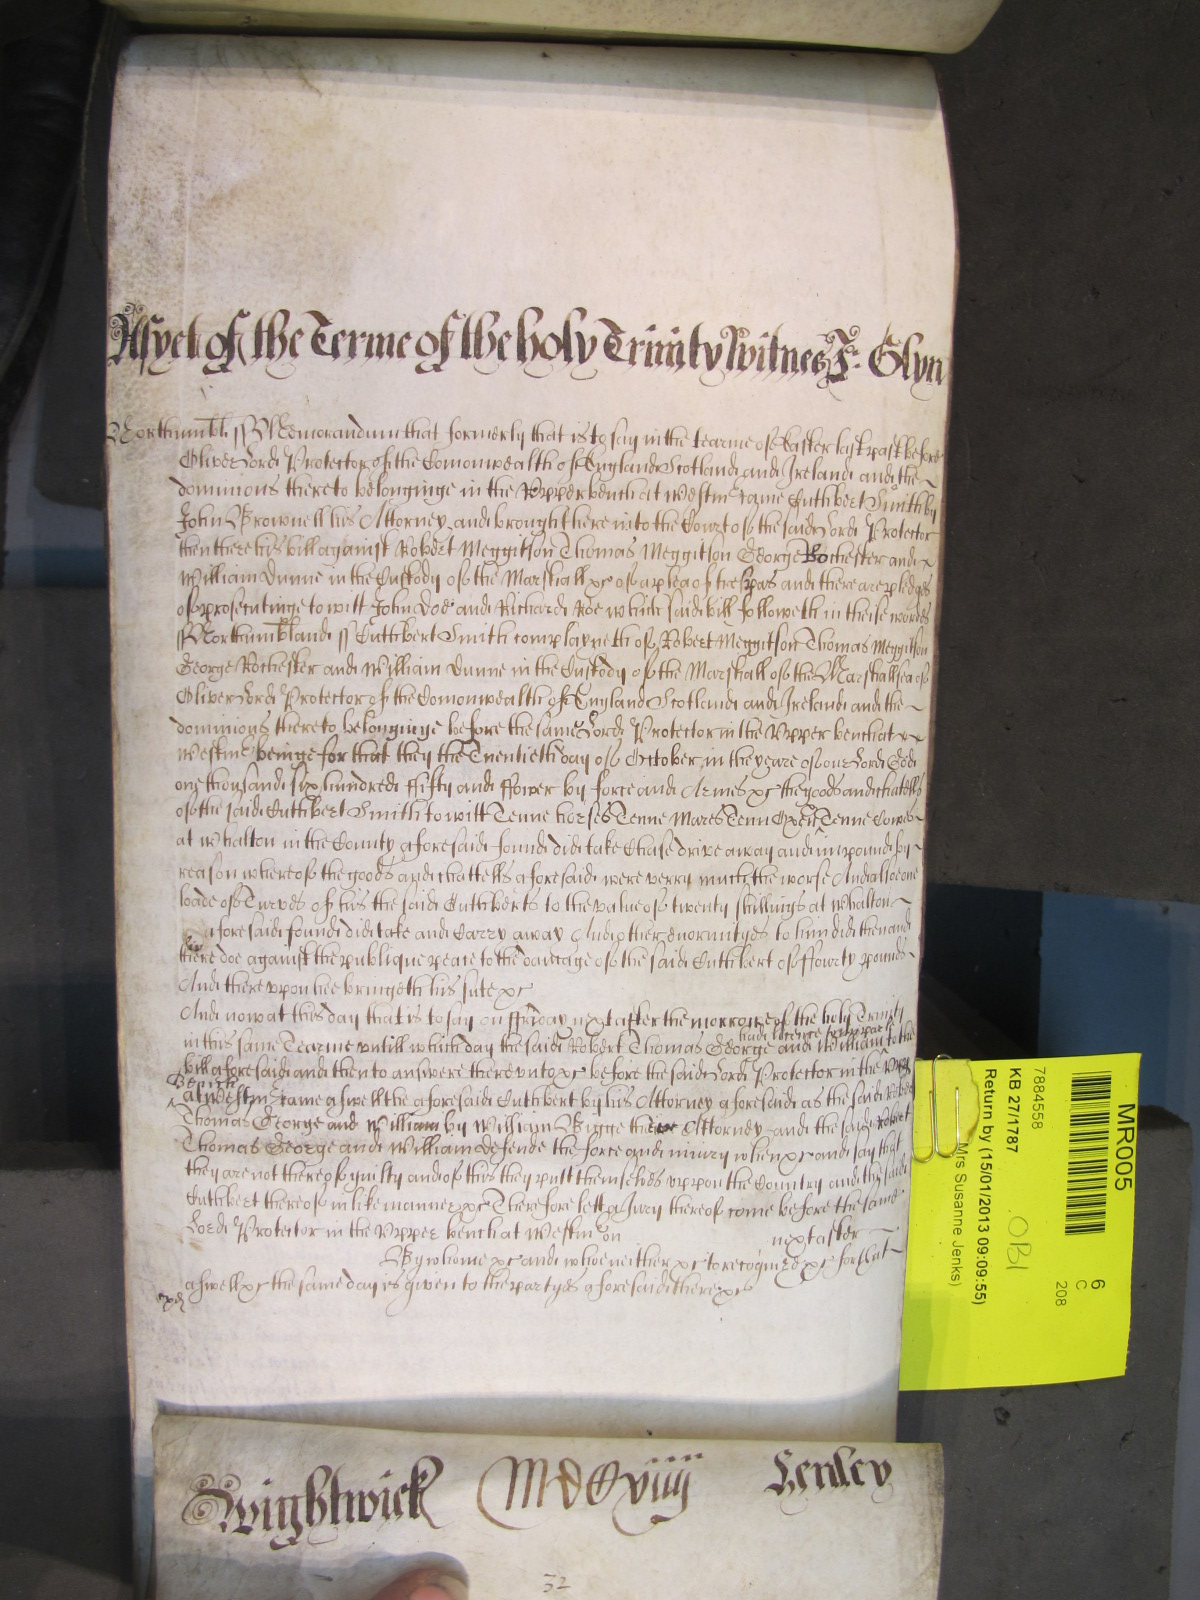 As yet of the Terme of the holy Trinity Witnes J: Glyn
Northumbl ss Memorandum that formerly that is to say in the tearme of Easter last past before
Oliver Lord Protector of the Comonwealth of England Scotland and Ireland and the
dominions thereto belonginge in the Vpper bench at Westm came Cuthbert Smith by
John Brownell his Attorney and brought here into the Court of the said Lord Protector
then there his bill against Robert Meggitson Thomas Meggitson George Rochester and
William Dunne in the Custody of the Marshall &c of a plea of trespas and there are pledges
of prosecutinge to witt John Doe and Richard Roe which said bill followeth in theise wordes
ss Northumbland ss Cuthbert Smith complayneth of Robert Meggitson Thomas Meggitson
George Rochester and William Dunne in the Custody of the Marshall of the Marshallsea of
Oliver Lord Protector of the Comonwealth of England Scotland and Ireland and the
dominions thereto belonginge before the same Lord Protector in the Vpper bench at
Westm beinge for that they the Twentieth day of October in the yeare of our Lord God
one thousand six hundred fifty and ffower by force and Armes &c the goods and chattells
of the said Cuthbert Smith to witt Tenne horses Tenne Mares Tenn Oxen Tenne Cowes
at Whalton in the County aforesaid found did take Chase drive away and impound by
reason whereof the goods and chattells aforesaid were very much the worse And alsoe one
loade of Turves of his the said Cuthberts to the value of twenty shillings at Whalton
aforesaid found did take and Carry away And other enormityes to him did then and
there doe against the publique peace to the damage of the said Cuthbert of ffowrty pounds
And therevpon hee bringeth his sute &c
And now at this day that is to say on ffryday next after the morrowe of the holy Trinity
in this same Tearme vntill which day the said Robert Thomas George and William to the
had licence to imparle
bill aforesaid and then to answere therevnto &c before the said Lord Protector in the Vpper
Bench
at Westm came aswell the aforesaid Cuthbert by his Attorney aforesaid as the said Robert
Thomas George and William by William Bigge their Attorney and the said Robert
Thomas George and William defende the force and iniury when &c and say that
they are not thereof guilty and of this they putt themselves vppon the Country and the said
Cuthbert thereof in like manner &c Therefore lett a Jury thereof come before the same
Lord Protector in the Vpper bench at Westm on next after
By whome &c and whoe neither &c to recognize &c for that
aswell &c the same day is given to the partyes aforesaid there &c
Wightwick MDCCxviiij Henley
32
MR005
6
C
208
7884558
KB 27/1787
OBI
Return by (15/01/2013 09:09:55)
Mrs Susanne Jenks)